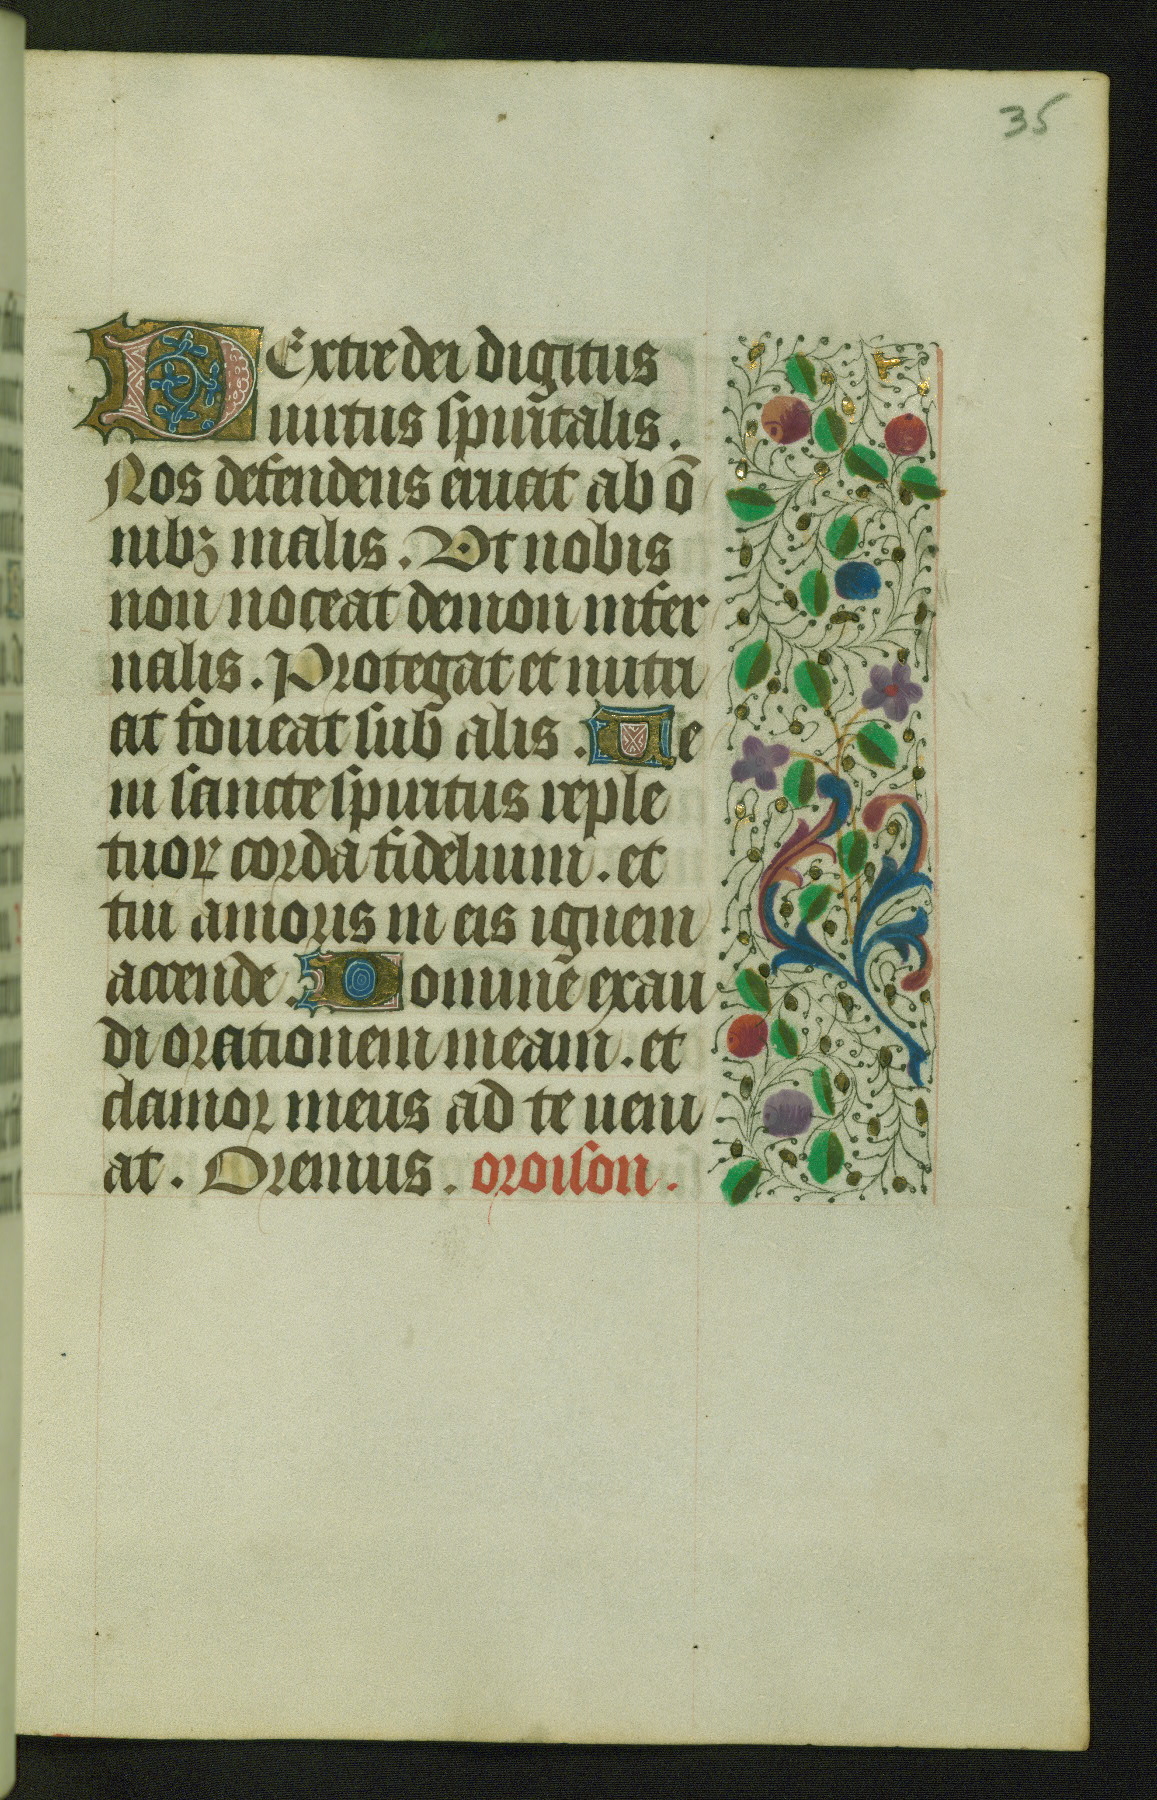 35
DExtre dei digitus
uirtus spūitalis.
Nos defendens eruat ab õ
nibꝫ malis. Vt nobis
non noceat demon infer
nalis. Protegat et nutri
at foueat sub alis. Ue
ni sancte spiritus reple
tuoꝝ corda fidelium. et
tui amoris in eis ignem
accende. Domine exau
di orationem meam. et
clamor meus ad te ueni
at. Oremus. oroison.